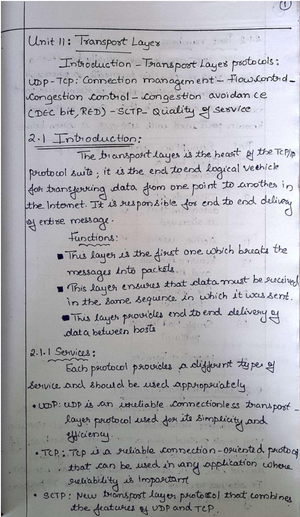 1
Unit II: Transport Layer
Introduction - Transport Layer protocols:
UDP - TCP: Connection management - Flow control -
Congestion control - congestion avoidance
(DEC bit, RED) - SCTP - Quality of service
2.1 Introduction:
The transport layer is the heart of the TCP/IP
protocol suite; it is the end to end logical vehicle
for transferring data from one point to another in
the Internet. It is responsible for end to end delivery
of entire message.
Functions:
■ This layer is the first one which breaks the
messages into packets.
■ This layer ensures that data must be received
in the same sequence in which it was sent.
■ This layer provides end to end delivery of
data between hosts
2.1.1 Services:
Each protocol provides a different type of
service and should be used appropriately
• UDP: UDP is an unreliable connectionless transport -
layer protocol used for its simplicity and
efficiency
• TCP: TCP is a reliable connection-oriented protocol
that can be used in any application where
reliability is important
• SCTP: New transport layer protocol that combines
the features of UDP and TCP.